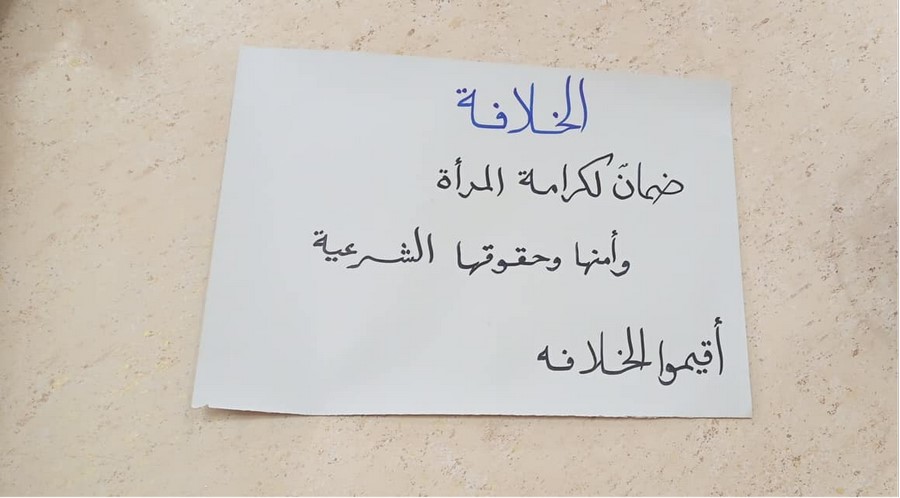 الخلافة
ضمانٌ لكرامة المرأة
وأمنها وحقوقها الشرعية
أقيموا الخلافه